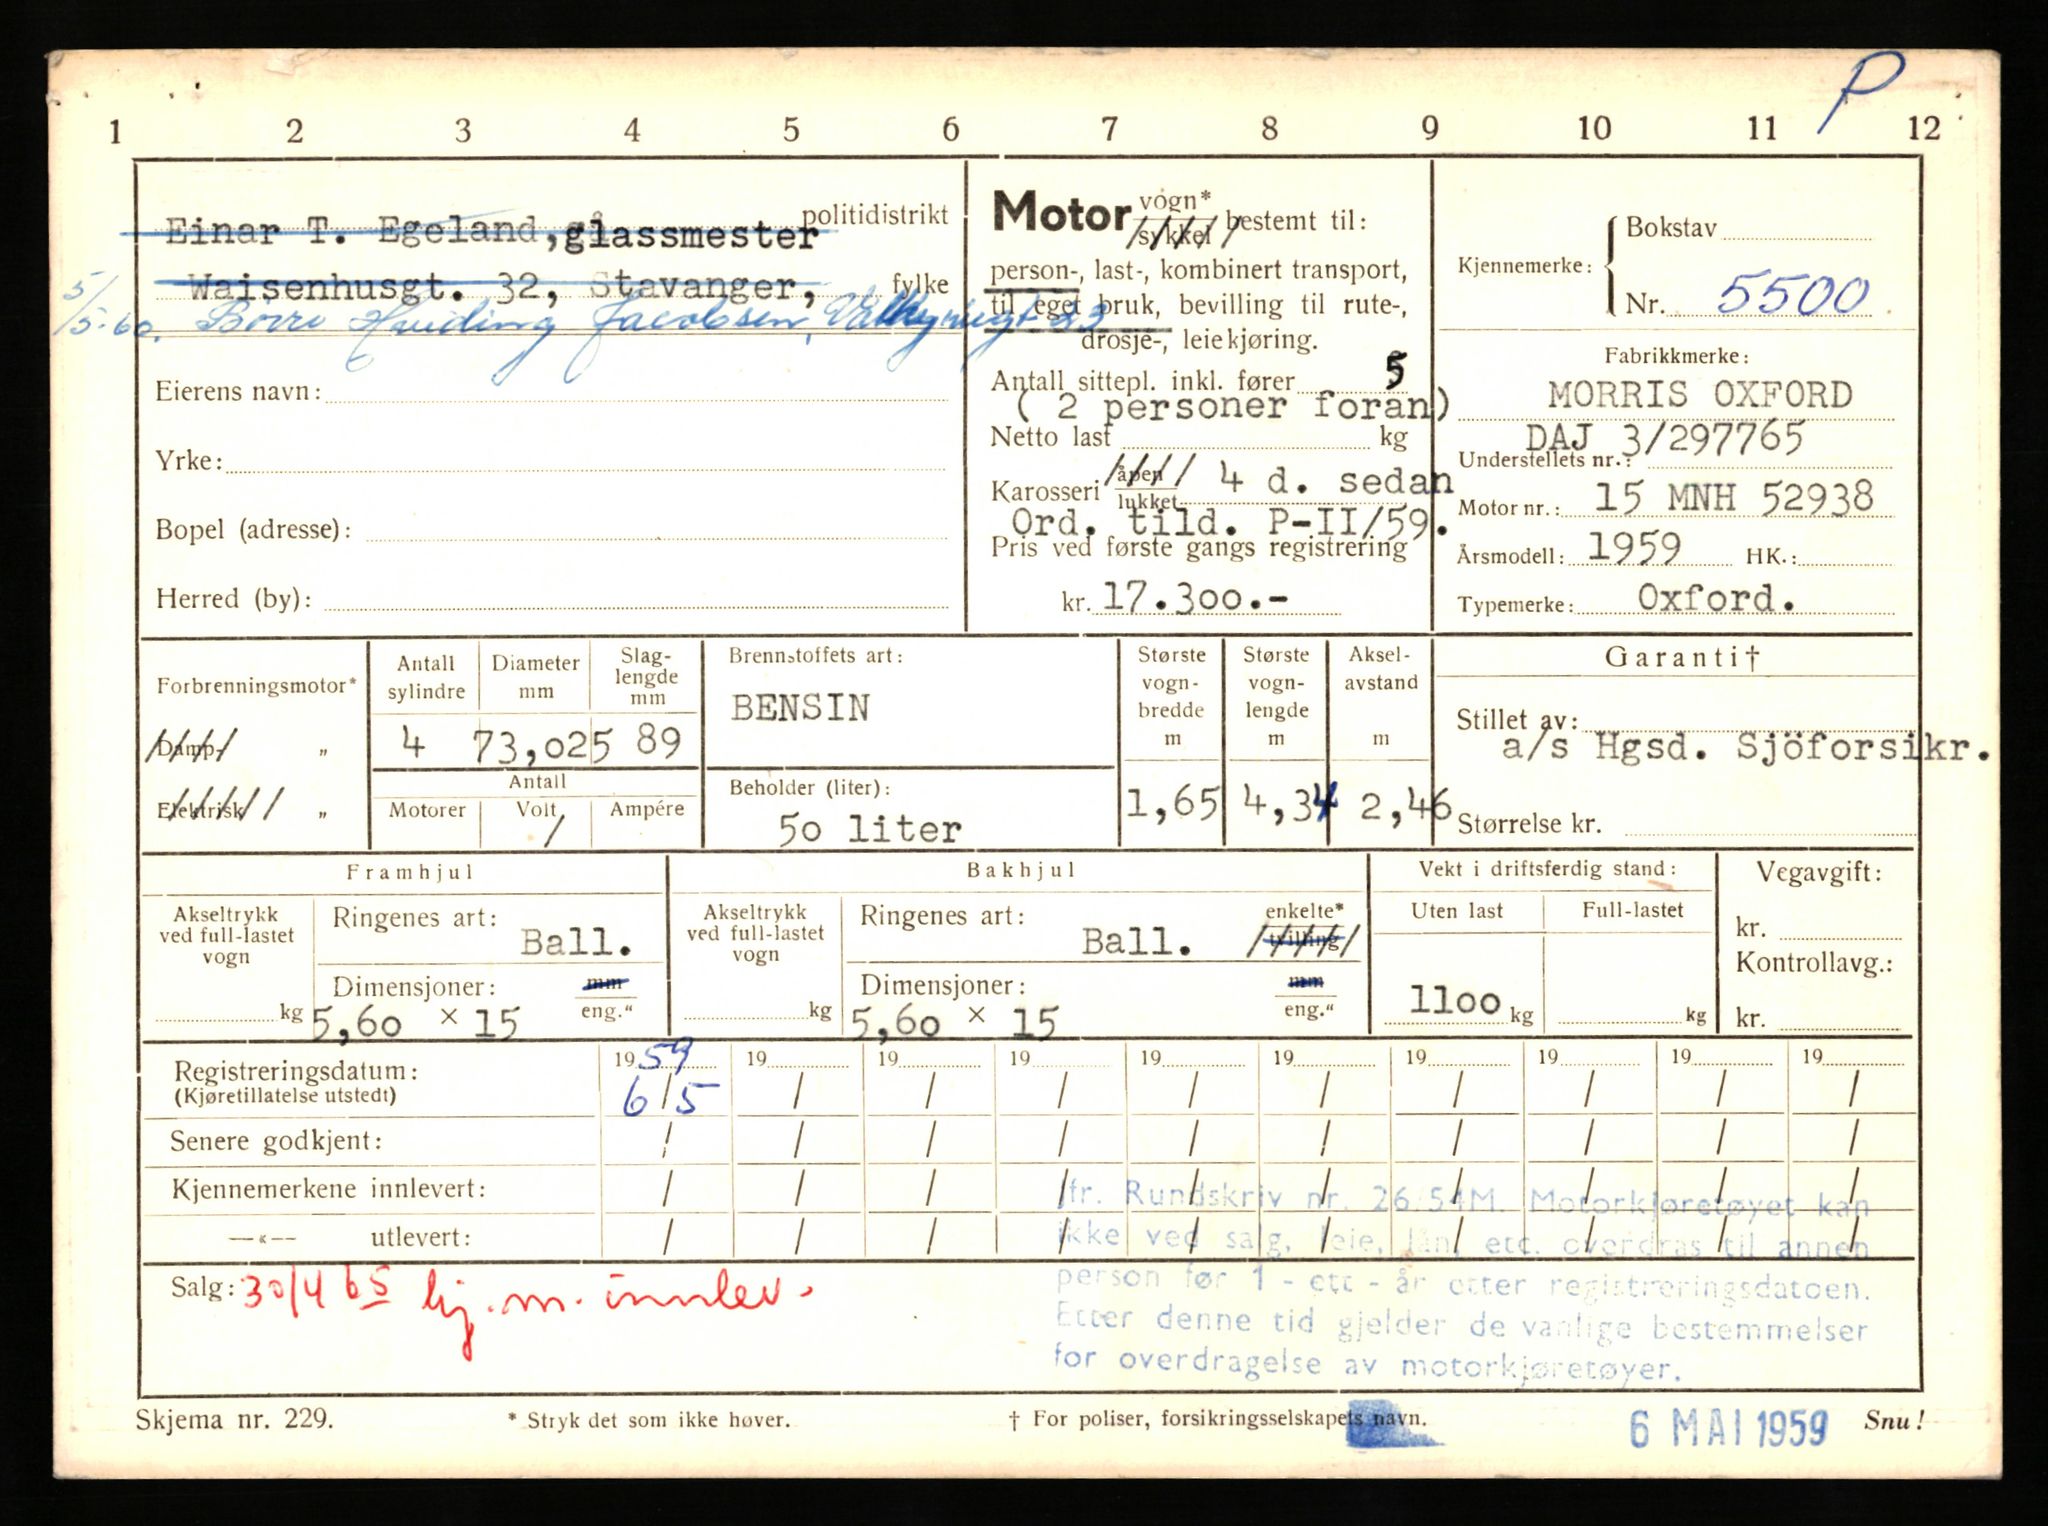 P
1 2 3 4 5 6 7 8 9 10 11 12
politidistrikt
Einar T. Egeland, glassmester
Waisenhusgt. 32, Stavanger, fylke
5/5-60. Børre Hveding Jacobsen, 23
Eierens navn:
Yrke:
Bopel (adresse):
Herred (by):
Motor vogn* sykkel bestemt til:
person-, last-, kombinert transport,
til eget bruk, bevilling til rute-,
drosje-, leiekjøring.
Antall sittepl. inkl. fører 5
( 2 personer foran)
Netto last kg
Karosseri åpen lukket 4 d. sedan
Ord. tild. P-II/59.
Pris ved første gangs registrering
kr. 17.300.-
Kjennemerke: Bokstav
Nr. 5500
Fabrikkmerke:
MORRIS OXFORD
DAJ 3/297765
Understellets nr.:
Motor nr.: 15 MNH 52938
Årsmodell: 1959 HK.:
Typemerke: Oxford.
Forbrenningsmotor*
Damp- „
Elektrisk „
Antall sylindre Diameter mm Slag-lengde mm
4 73,025 89
Antall
Motorer Volt Ampére
/
Brennstoffets art:
BENSIN
Beholder (liter):
50 liter
Største vogn-bredde m
1,65
Største vogn-lengde m
4,34
Aksel-avstand m
2,46
Garanti†
Stillet av:
a/s Hgsd. Sjöforsikr.
Størrelse kr.
Framhjul
Akseltrykk ved full-lastet vogn
kg
Ringenes art:
Ball.
Dimensjoner: mm
5,60 x 15 eng."
Bakhjul
Akseltrykk ved full-lastet vogn
kg
Ringenes art: enkelte*
Ball. tvilling
Dimensjoner: mm
5,60 x 15 eng."
Vekt i driftsferdig stand:
Uten last Full-lastet
1100 kg kg
Vegavgift:
kr.
Kontrollavg.:
kr.
1959 19 19 19 19 19 19 19 19 19
Registreringsdatum:
(Kjøretillatelse utstedt) 6/5 / / / / / / / / /
Senere godkjent: / / / / / / / / / /
Kjennemerkene innlevert: / / / / / / / / / /
—«— utlevert: / / / / / / / / / /
Jfr. Rundskriv nr. 26/54M. Motorkjøretøyet kan
ikke ved salg, leie, lån, etc. overdras til annen
person før 1 - ett - år etter registreringsdatoen.
Etter denne tid gjelder de vanlige bestemmelser
for overdragelse av motorkjøretøyer.
Salg: 30/4 65 kj. m. innlev.
Skjema nr. 229.
* Stryk det som ikke høver.
† For poliser, forsikringsselskapets navn.
6 MAI 1959
Snu!